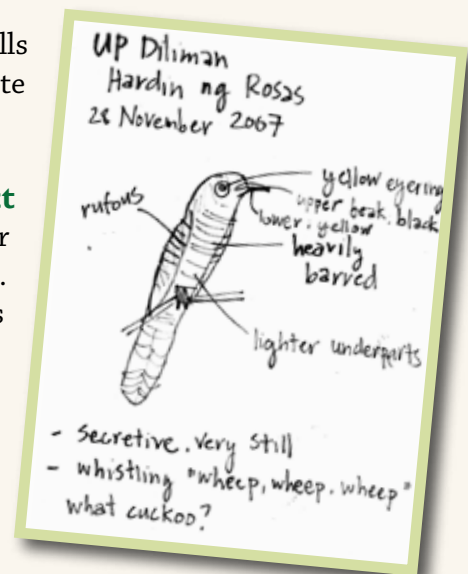 lls
te
t
r
.
s
UP Diliman
Hardin ng Rosas
28 November 2007
yellow eyering
upper beak. black
lower. yellow
rufous
heavily
barred
lighter underparts
- secretive. very still
- whistling "wheep, wheep. wheep"
what cuckoo?